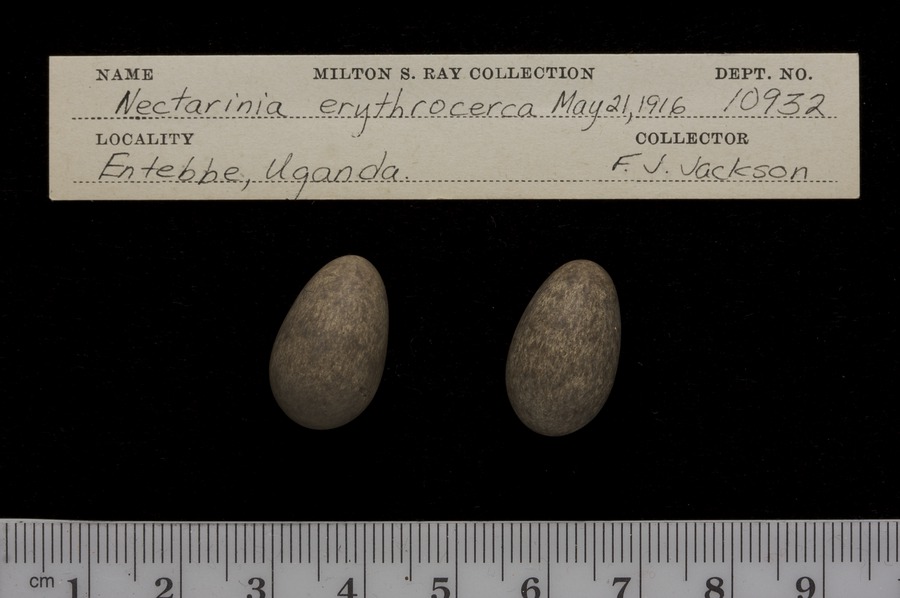 NAME MILTON S. RAY COLLECTION DEPT. NO.
Nectarinia erythrocerca May 21, 1916 10932
LOCALITY COLLECTOR
Entebbe, Uganda. F. J. Jackson
cm 1 2 3 4 5 6 7 8 9